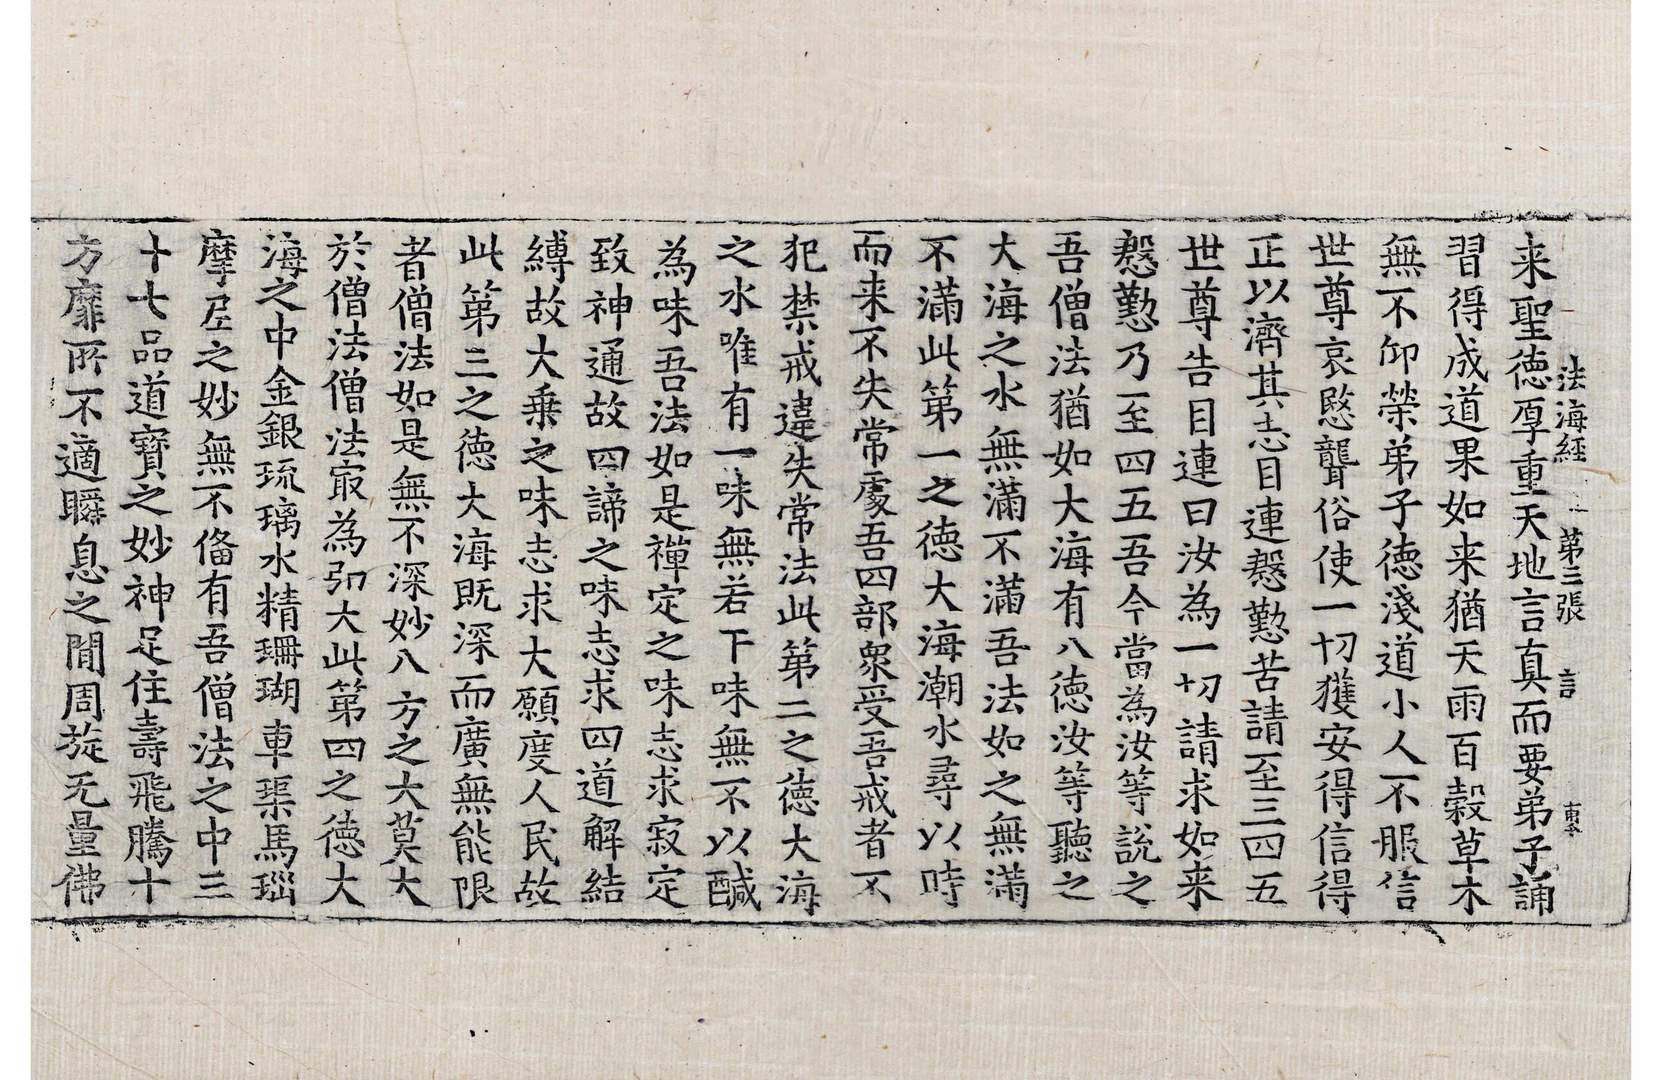 法海經 第三張 言
来聖德厚重天地言真而要弟子誦
習得成道果如来猶天雨百穀草木
無不仰榮弟子德淺道小人不服信
世尊哀愍聾俗使一切獲安得信得
正以濟其志目連慇懃苦請至三四五
世尊告目連曰汝為一切請求如来
慇懃乃至四五吾今當為汝等說之
吾僧法猶如大海有八德汝等聽之
大海之水無滿不滿吾法如之無滿
不滿此第一之德大海潮水尋以時
而来不失常處吾四部衆受吾戒者不
犯禁戒違失常法此第二之德大海
之水唯有一味無若干味無不以醎
為味吾法如是禪定之味志求寂定
致神通故四諦之味志求四道解結
縛故大乗之味志求大願度人民故
此第三之德大海既深而廣無能限
者僧法如是無不深妙八方之大莫大
於僧法僧法冣為弘大此第四之德大
海之中金銀琉璃水精珊瑚車𤦲馬瑙
摩尼之妙無不俻有吾僧法之中三
十七品道寶之妙神足住壽飛騰十
方靡所不適瞬息之閒周旋无量佛